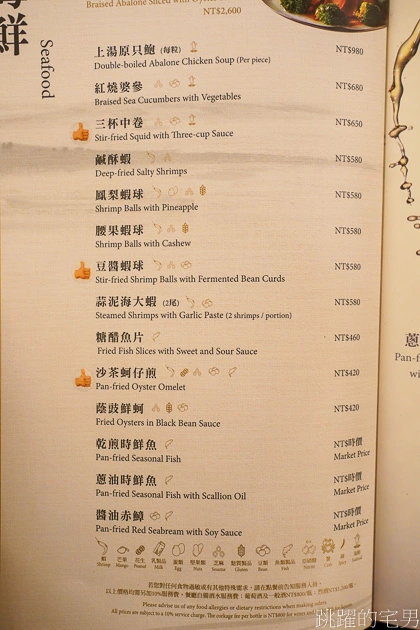 海鮮
Seafood
Braised Abalone Sliced with Oyster
NT$2,600
上湯原只鮑 (每粒) NT$980
Double-boiled Abalone Chicken Soup (Per piece)
紅燒婆參 NT$680
Braised Sea Cucumbers with Vegetables
三杯中卷 NT$650
Stir-fried Squid with Three-cup Sauce
鹹酥蝦 NT$580
Deep-fried Salty Shrimps
鳳梨蝦球 NT$580
Shrimp Balls with Pineapple
腰果蝦球 NT$580
Shrimp Balls with Cashew
豆醬蝦球 NT$580
Stir-fried Shrimp Balls with Fermented Bean Curds
蒜泥海大蝦 (2尾) NT$580
Steamed Shrimps with Garlic Paste (2 shrimps / portion)
糖醋魚片 NT$460
Fried Fish Slices with Sweet and Sour Sauce
沙茶蚵仔煎 NT$420
Pan-fried Oyster Omelet
蔭豉鮮蚵 NT$420
Fried Oysters in Black Bean Sauce
乾煎時鮮魚 NT$時價
Pan-fried Seasonal Fish Market Price
蔥油時鮮魚 NT$時價
Pan-fried Seasonal Fish with Scallion Oil Market Price
醬油赤鯮 NT$時價
Pan-fried Red Seabream with Soy Sauce Market Price
蝦 芒果 花生 乳製品 蛋類 堅果類 芝麻 麩質製品 豆類 魚類製品
Shrimp Mango Peanut Milk Egg Nuts Sesame Gluten Bean Fish
若您對任何食物過敏或有其他特殊需求，請在點餐前告知服務人員。
Please advise us of any food allergies or dietary restrictions when making orders.
All prices are subject to a 10% service charge. The corkage fee per bottle is NT$800 for wines and
蔥
Pan-f
wi
跳躍的宅男